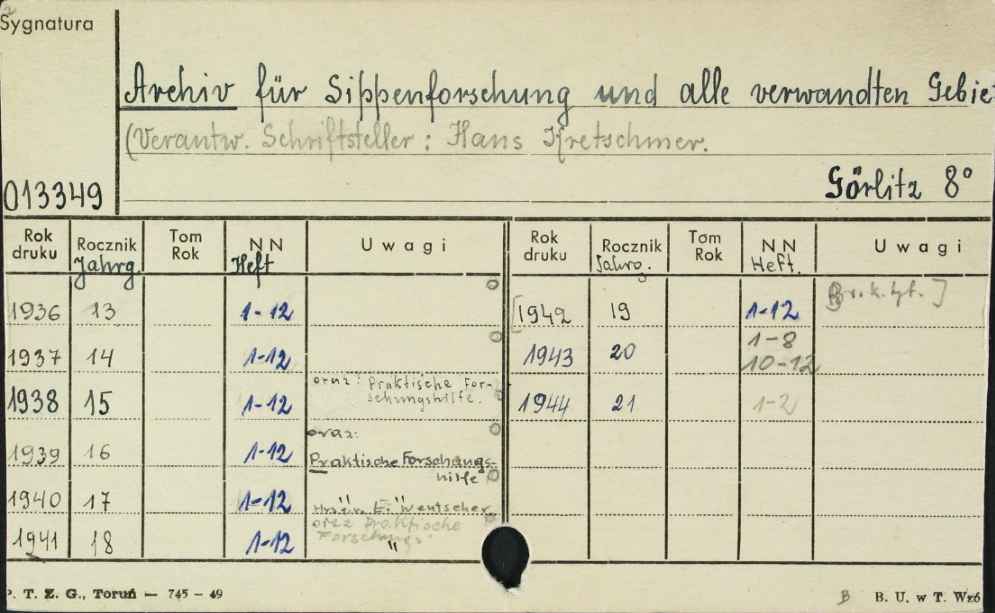 Sygnatura
Archiv für Sippenforschung und alle verwandten Gebiet
(Verantw. Schriftsteller: Hans Kretschmer.
Görlitz 8°
013349
Rok druku Rocznik Tom Rok NN Uwagi Rok druku Rocznik Tom Rok NN Uwagi
Jahrg. Heft Jahrg. Heft.
1936 13 1-12 [1942 19 1-12
1937 14 1-12 1943 20 1-8
10-12
1938 15 1-12 oraz: Praktische For-
schungshilfe. 1944 21 1-2
1939 16 1-12 oraz:
Praktische Forschungs-
hilfe
1940 17 1-12
1941 18 1-12 oraz Praktische
Forschungs- "
P. T. Z. G., Toruń — 745 - 49
B B. U. w T. Wzó